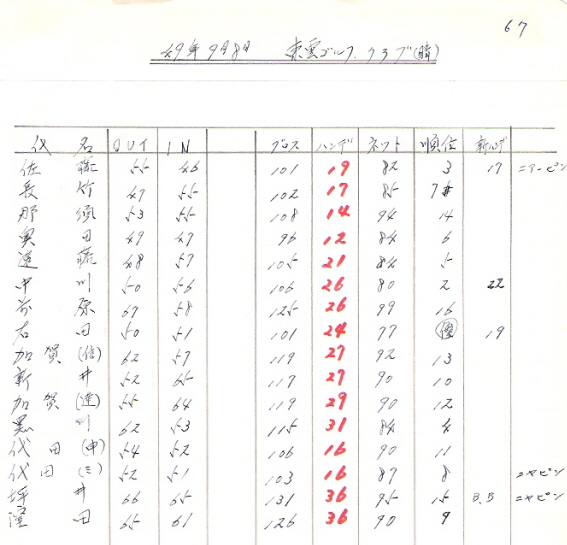 67
49年9月8日 東雲ゴルフクラブ(晴)
氏名 OUT IN グロス ハンデ ネット 順位 新ハンデ
佐藤 55 46 101 19 82 3 17 ニアーピン
長竹 47 55 102 17 85 7
那須 53 55 108 14 94 14
奥田 49 47 96 12 84 6
遠藤 48 57 105 21 84 5
中川 50 56 106 26 80 2 22
原 67 58 125 26 99 16
右田 50 51 101 24 77 優 19
加賀(信) 62 57 119 27 92 13
新井 52 65 117 27 90 10
加賀(達) 55 64 119 29 90 12
黒川 62 53 115 31 84 4
代田(申) 54 52 106 16 90 11
代田(三) 52 51 103 16 87 8 ニヤピン
坪井 66 65 131 36 95 15 B.B ニヤピン
田 65 61 126 36 90 9